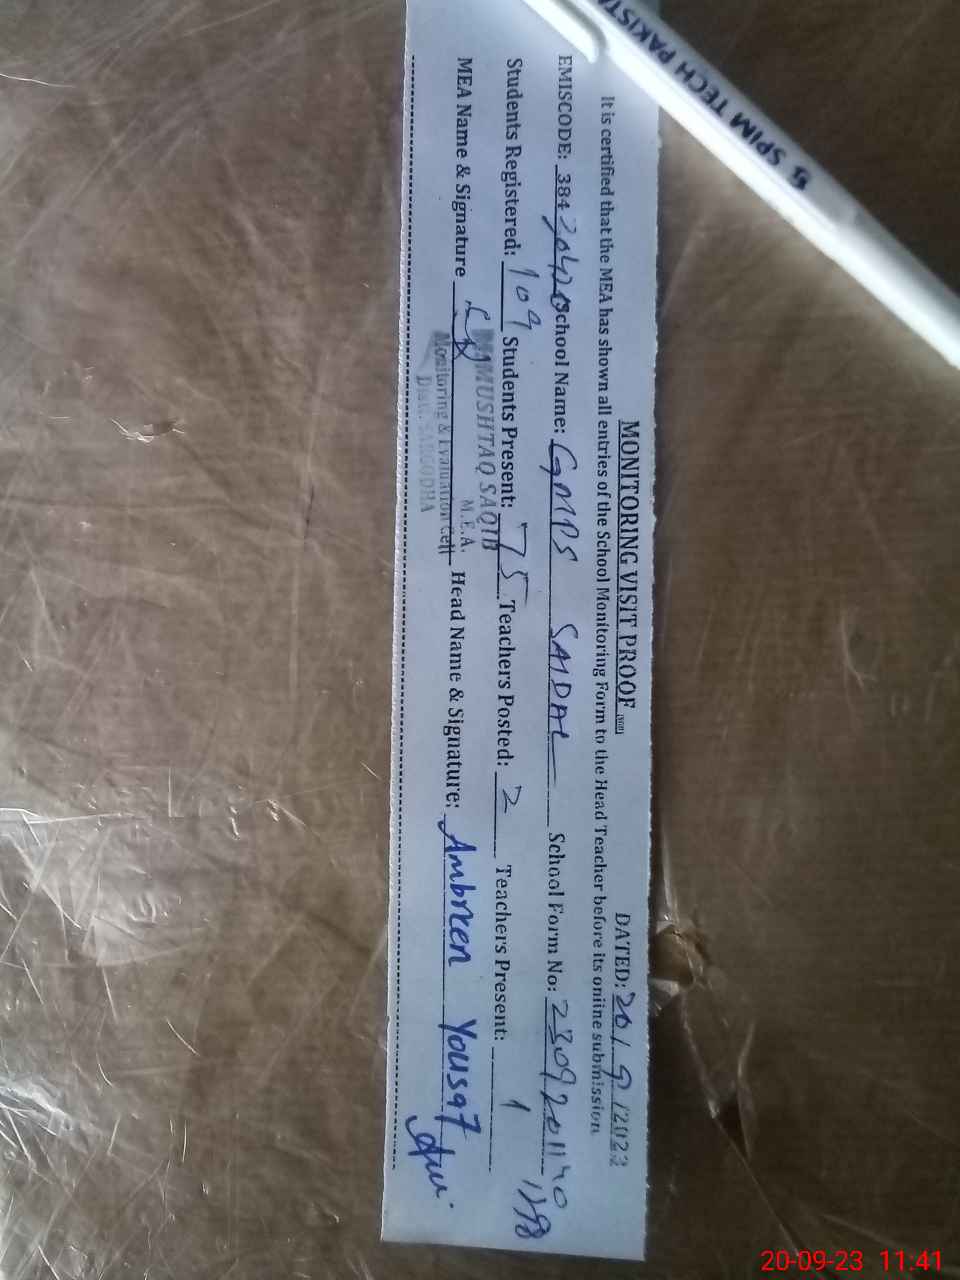 MONITORING VISIT PROOF DATED: 20/9/2023
It is certified that the MEA has shown all entries of the School Monitoring Form to the Head Teacher before its online submission
EMISCODE: 384 School Name: GMPS SAIDAL School Form No:
Students Registered: 109 Students Present: 75 Teachers Posted: 2 Teachers Present: 1
MUSHTAQ SAQIB
M.E.A.
MEA Name & Signature Head Name & Signature: Ambreen Yousaf
Monitoring & Evaluation Cell
Distt. SARGODHA
SPIM TECH PAKISTA
20-09-23 11:41